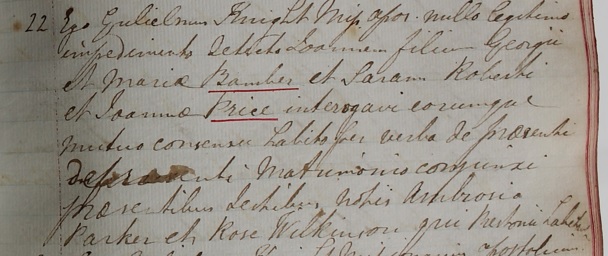 22 Ego Gulielmus Knight Miss. apos. nullo legitimo
impedimento detecto Joannem filium Georgii
et Mariæ Bamber et Saram Roberti
et Joannæ Price interogavi eorumque
mutuo consensu habito per verba de præsenti
Matrimonio conjunxi
præsentibus testibus notis Ambrosio
Parker et Rose Wilkinson qui Prestonii habit